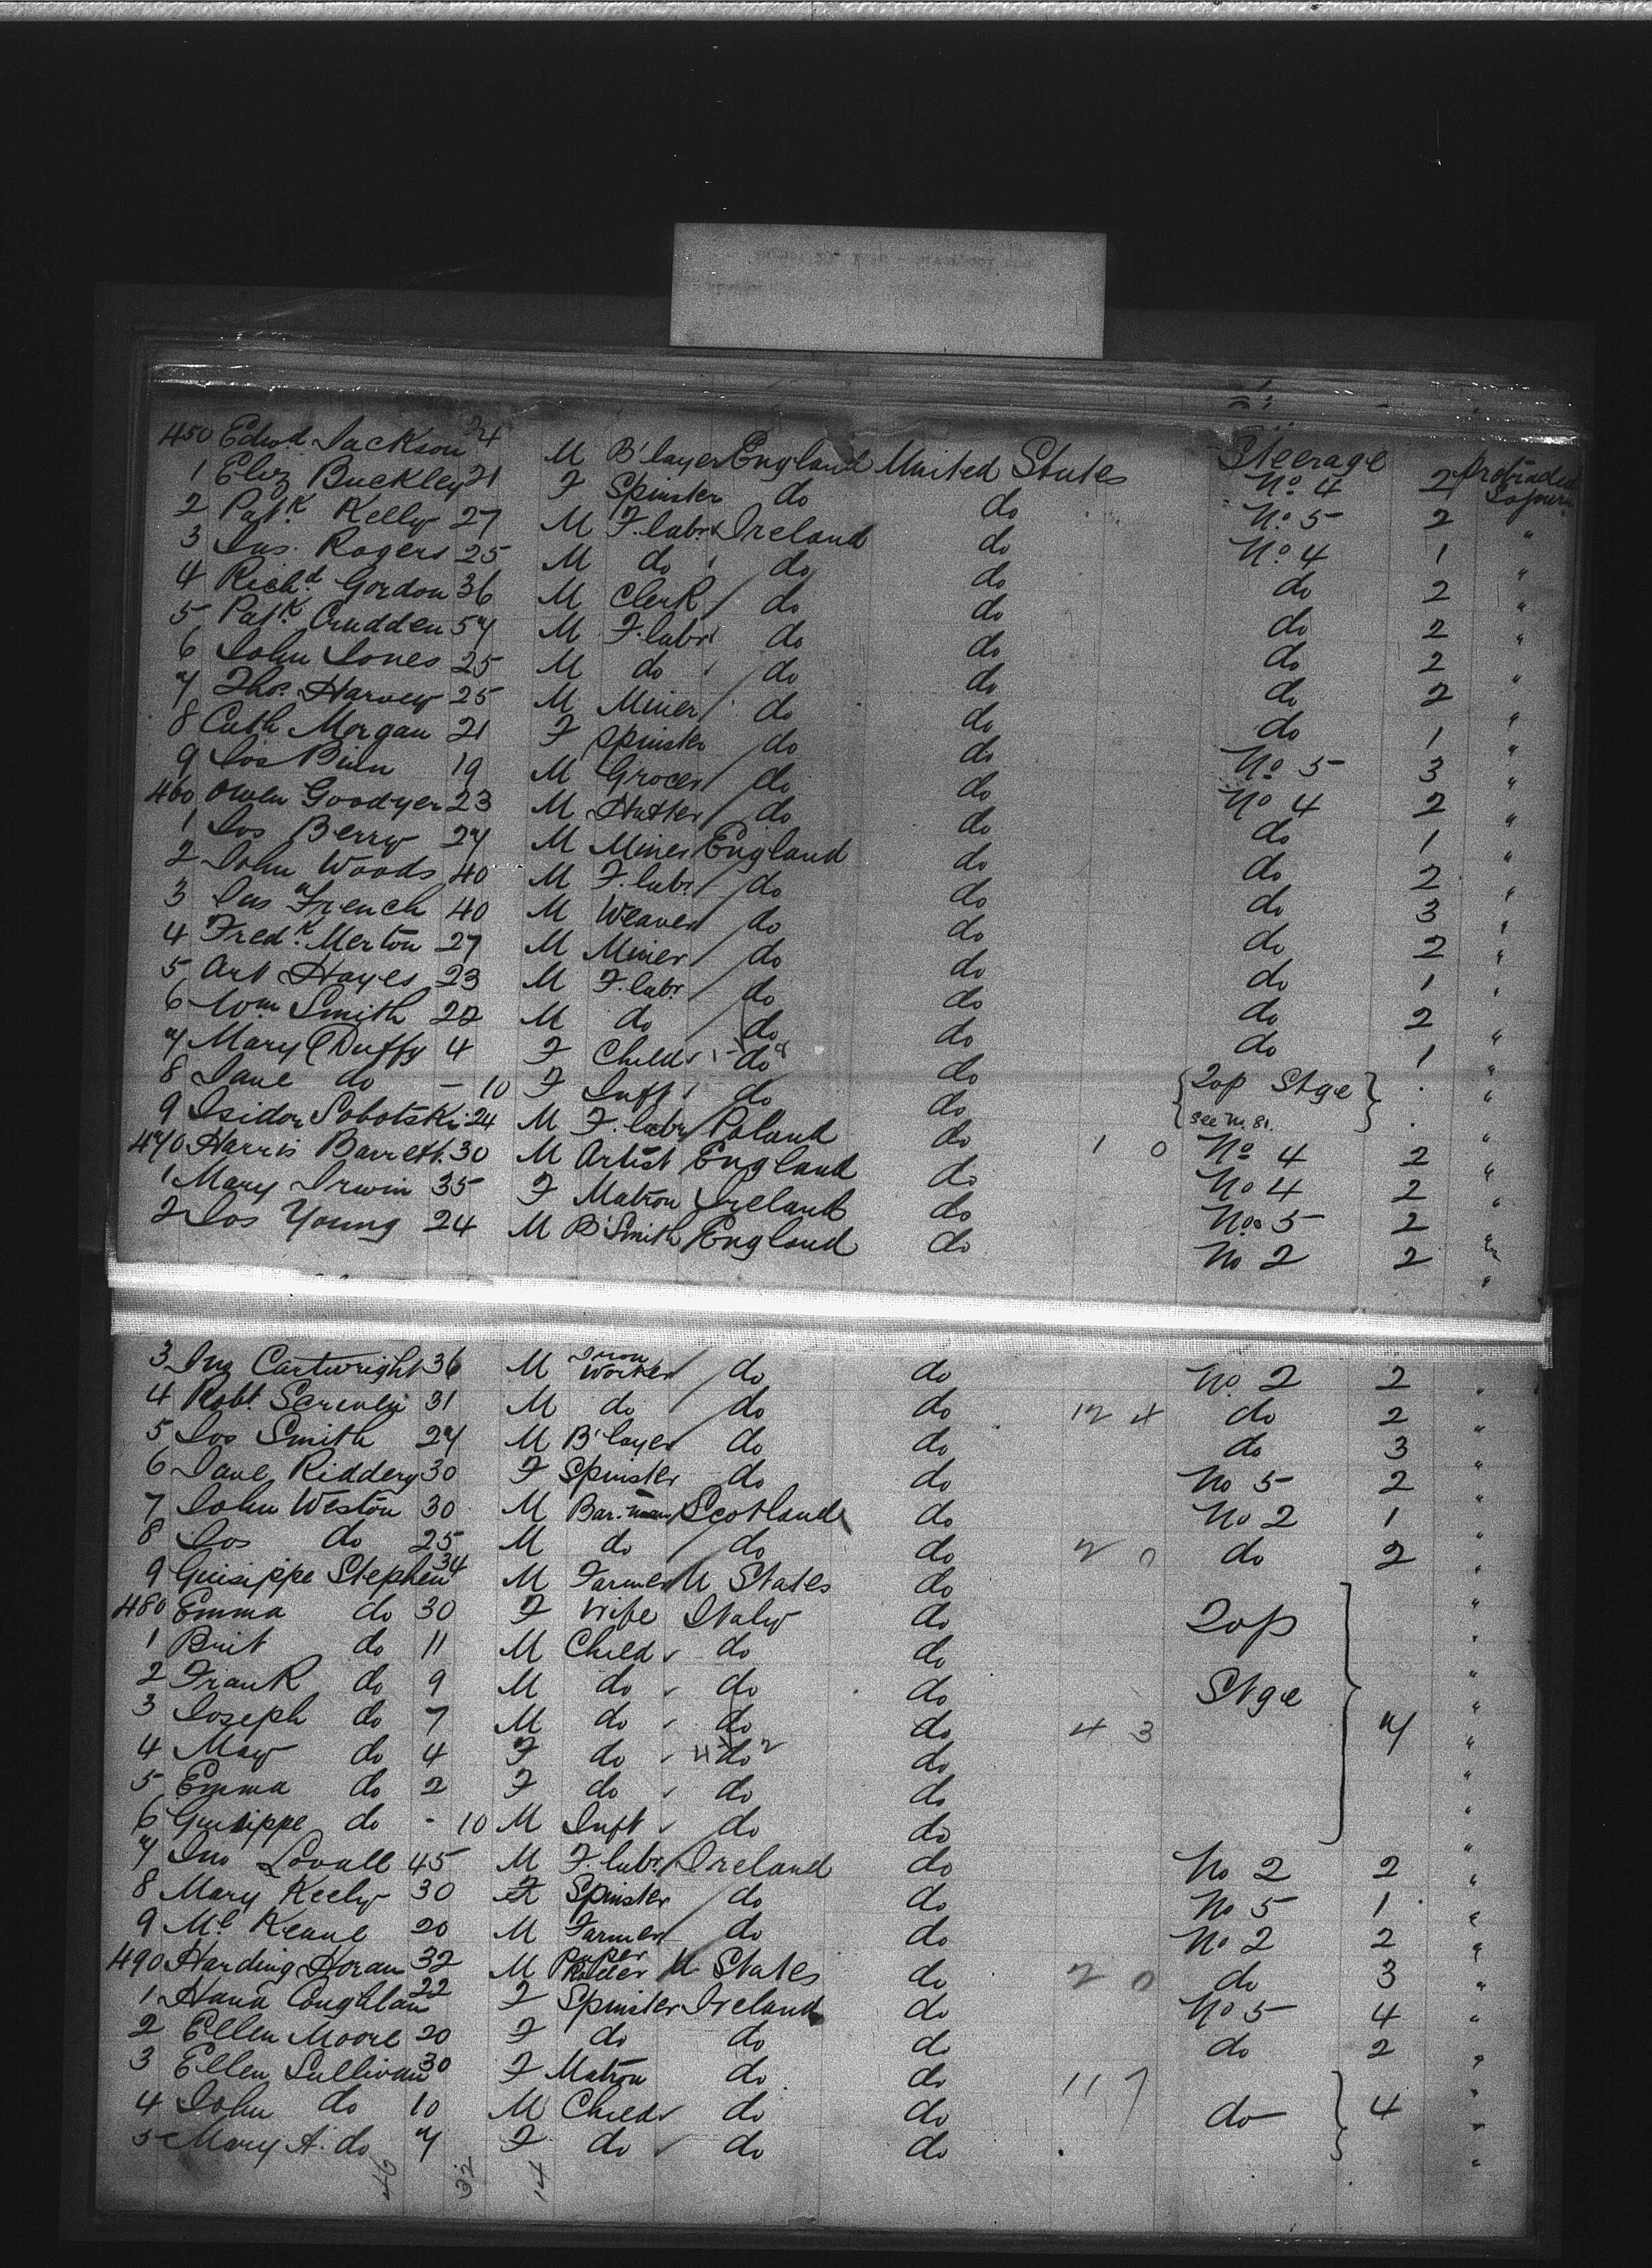 450 Edwd Jackson 24 M B'layer England United States Steerage No. 4 2 Protracted Sojourn
1 Eliz Buckley 21 F Spinster do do No. 5 2 "
2 Patk Kelly 27 M F. labr Ireland do No. 4 1 "
3 Jas. Rogers 25 M do do do do 2 "
4 Richd Gordon 36 M Clerk do do do 2 "
5 Patk Crudden 57 M F. labr do do do 2 "
6 John Jones 25 M do do do do 2 "
7 Thos. Harvey 25 M Miner do do do 1 "
8 Cath Morgan 21 F Spinster do do No 5 3 "
9 Jos Binn 19 M Grocer do do No 4 2 "
460 Owen Goodyer 23 M Hatter do do do 1 "
1 Jos Berry 27 M Miner England do do 2 "
2 John Woods 40 M F. labr do do do 3 "
3 Jas French 40 M Weaver do do do 2 "
4 Fredk Merton 27 M Miner do do do 1 "
5 Art Hayes 23 M F. labr do do do 2 "
6 Wm Smith 22 M do do do do 1 "
7 Mary Duffy 4 F Child do do { Top Stge } "
8 Jane do - 10 F Inft do do see M. 81. "
9 Isidor Sobotski 24 M F. labr Poland do 1 0 No 4 2 "
470 Harris Barrett. 30 M Artist England do No 4 2 "
1 Mary Irwin 35 F Matron Ireland do No. 5 2 "
2 Jos Young 24 M B'Smith England do No 2 2 "
3 Jno Cartwright 36 M Iron Worker do do No. 2 2 "
4 Robt. Scriven 31 M do do do 12 4 do 2 "
5 Jos Smith 27 M B'layer do do do 3 "
6 Jane Riddery 30 F Spinster do do No 5 2 "
7 John Weston 30 M Bar-man Scotland do No 2 1 "
8 Jos do 25 M do do do 2 0 do 2 "
9 Guisippe Stephen 34 M Farmer U States do "
480 Emma do 30 F Wife Italy do Top "
1 Brit do 11 M Child do do "
2 Frank do 9 M do do do Stge "
3 Joseph do 7 M do do do 4 3 7 "
4 May do 4 F do do do "
5 Emma do 2 F do do do "
6 Guisippe do - 10 M Inft do do "
7 Jno Lovall 45 M F. labr Ireland do No 2 2 "
8 Mary Keely 30 F Spinster do do No 5 1 "
9 Ml Keane 20 M Farmer do do No 2 2 "
490 Harding Horan 32 M Paper Ruler U States do 2 0 do 3 "
1 Hana Coughlan 22 F Spinster Ireland do No 5 4 "
2 Ellen Moore 20 F do do do do 2 "
3 Ellen Sullivan 30 F Matron do do 11 7 "
4 John do 10 M Child do do do 4 "
5 Mary A. do 7 F do do do "
46 32 14